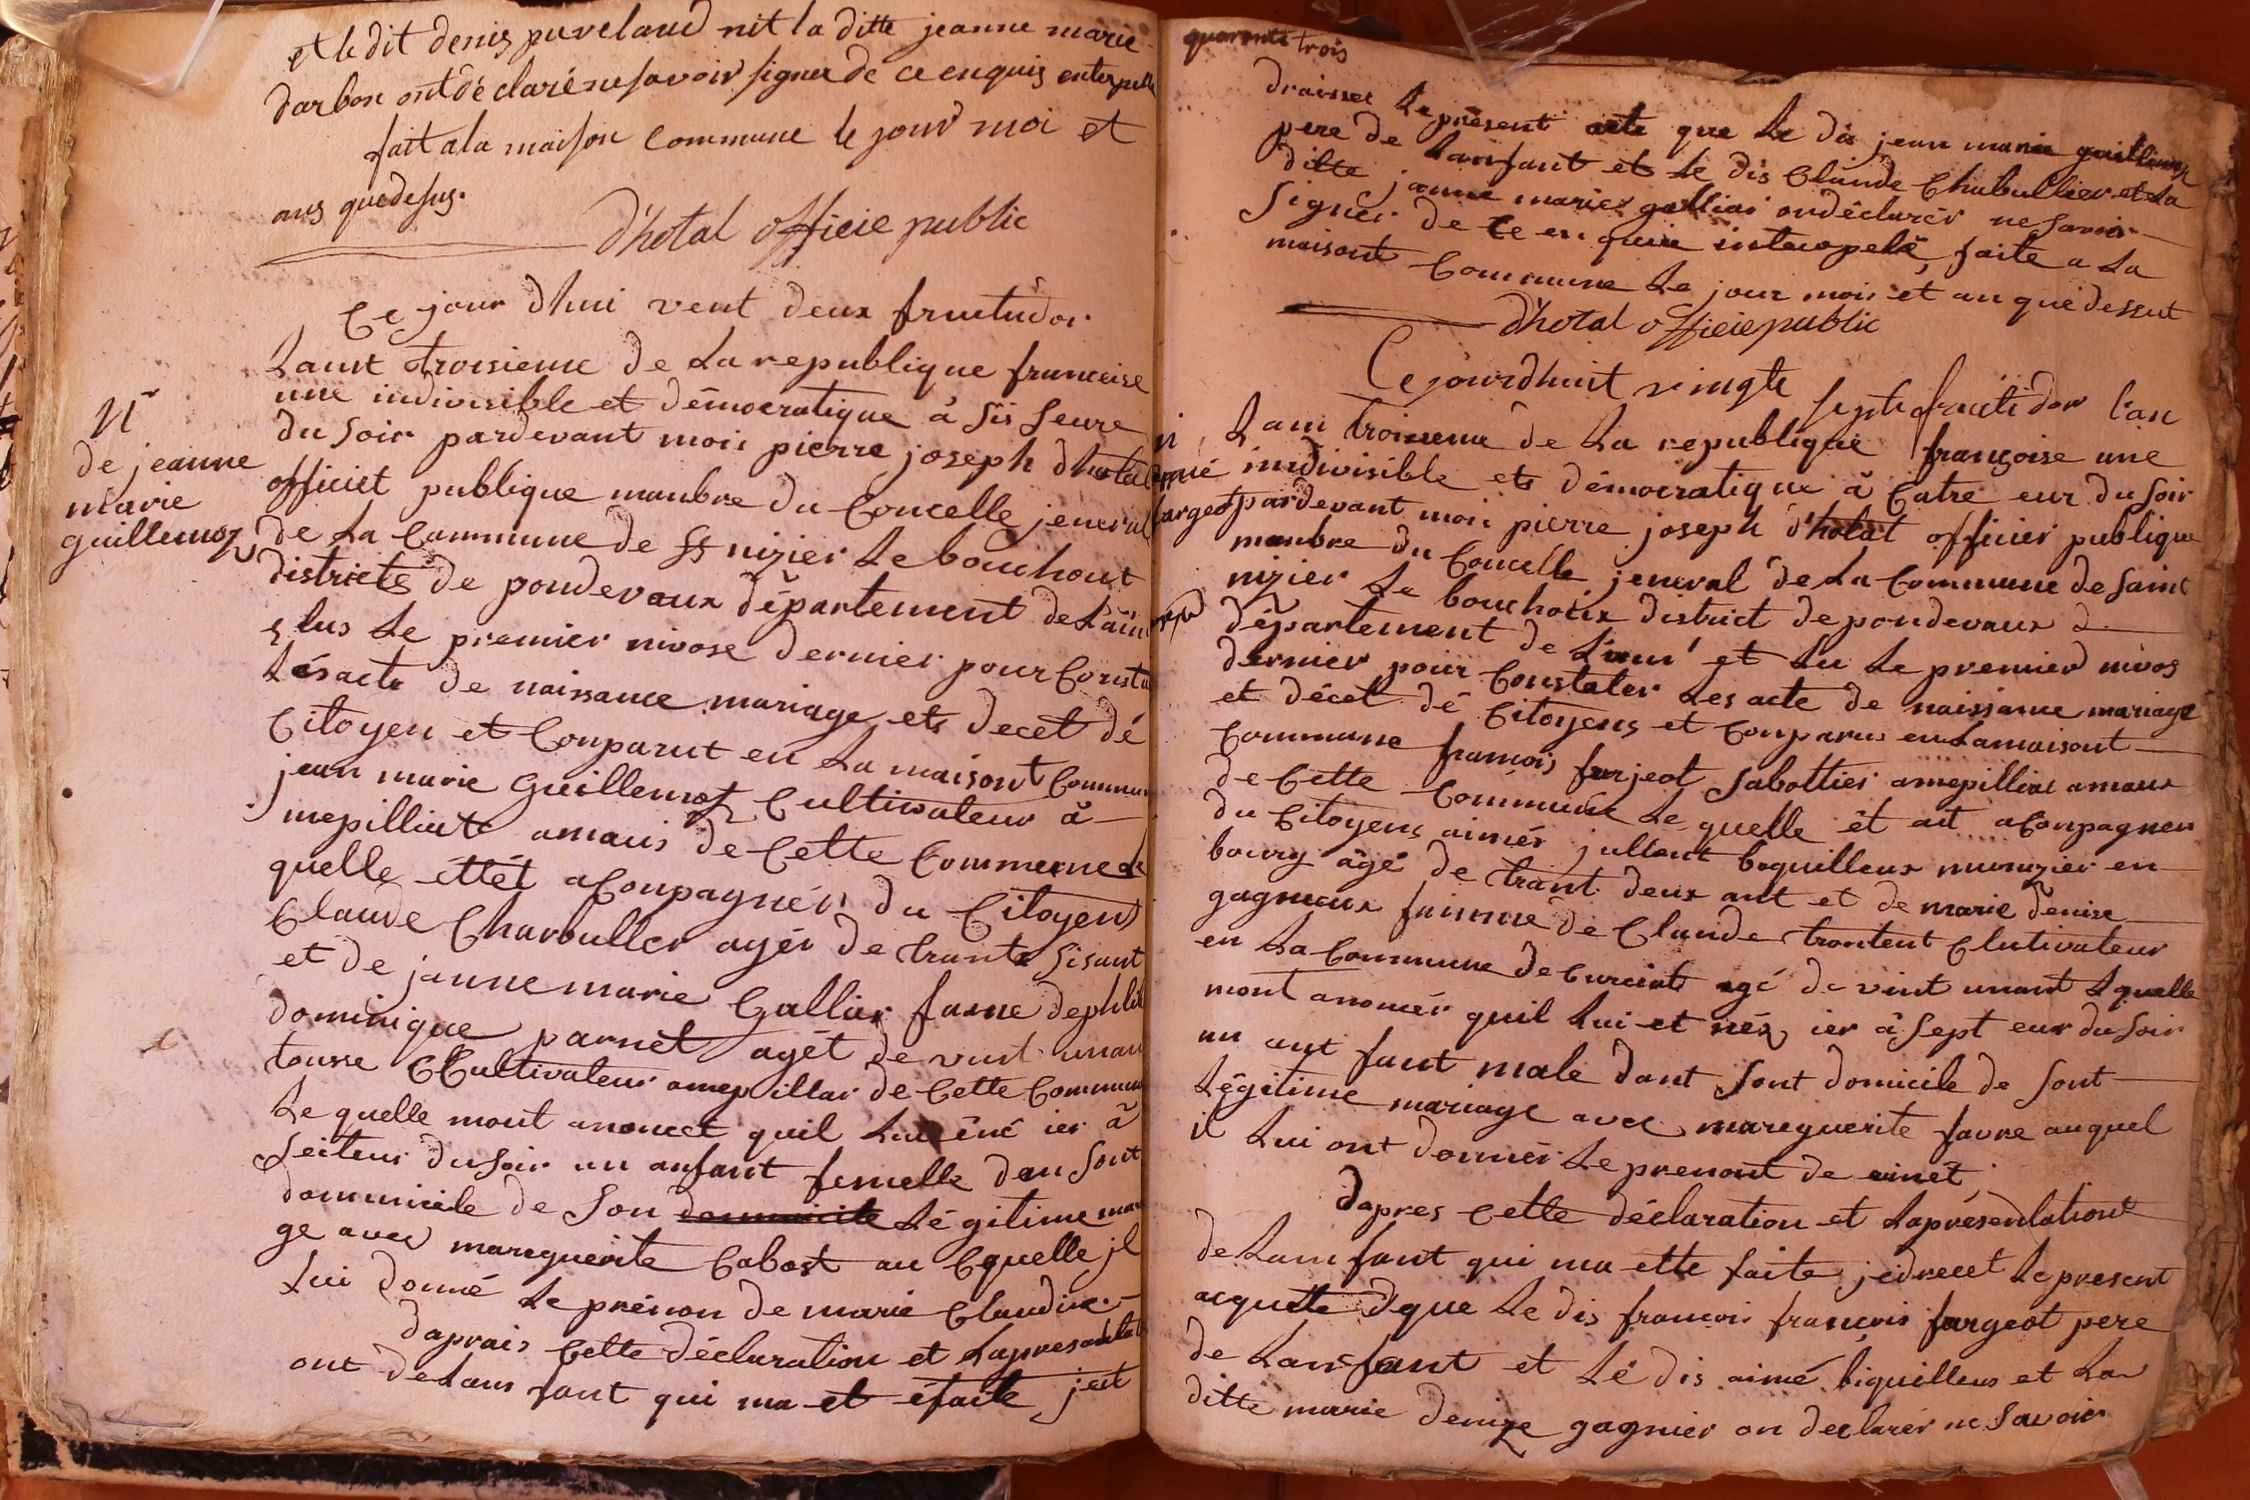 et le dit denis puvelaud nit la ditte jeanne marie
darbon ont déclaré ne savoir signer de ce enquis enterpelle
fait a la maison commune le jour moi et
ans que desus.
d'hotal officie public
Ce jour dhui vent deux fructidor
Lant troisieme de La republique francoise
une indivisible et démocratique à sis heure
du soir pardevant moi pierre joseph dhotal
officiet publique manbre du Concelle jeneral
de La Commune de St nizier Le bouchout
districts de pondevaux département de Lain
elus Le premier nivose dernier pour Consta
Lésacte de naissance mariage et decet dé
Citoyen et Conparut en La maisont Commun
jean marie Guillemoz Cultivateur à
mepilliat amaus de Cette Commune Le
quelle ettét aConpagnér du Citoyen
Claude Charbuller agér de trante sisant
et de janne marie Gallier fame de phili
dominique parnet agét de vint unan
tousse Cultivateur a mepillar de Cette Commun
Le quelle mont anoncet quil Lui éné ier à
seiteur du soir un anfant femelle dan sont
domunicile de Son Légitime maria
ge avec mareguerite Cabost au Cquelle jl
Lui donné Le prénon de marie Claudine.
daprais Cette déclaration et Lapresantati
ont de Lans fant qui ma et éfaite jeit
N
de jeanne
marie
guillemoz
quarante trois
draisser Le présent acte que Le dis jean marie guillemoz
pere de Lanfant et Le dis Claude Chabullier et La
ditte janne marie gallias ondéclarér ne savoir
signer de Ce en quiie interpelé, faite a La
maisont Commune Le jour mois et an que dessut
d'hotal officie public
Ce jourdhuit vingte septe fructidor l'an
Lant troisieme de La republique françoise une
indivisible et démocratique à Catre eur du soir
pardevant moi pierre joseph d'hotat officier publique
manbre du Concelle jeneral de La Commune de saint
nizier Le bouchoux district de pondevaux d
département de Lain et Lu Le premier nivos
dernier pour Constater Les acte de naissance mariage
et décet dé Citoyens et Conparu en Lamaisont
Commune francois farjeot Sabottier amepilliat amaux
de Cette Commune Le quelle êt ant aConpagner
du Citoyens aimér jullent boquilleux munuzier en
bourg àgé de trant deux ant et de marie denise
gagneux faimme de Claude trontent Clutivateur
en La Commune de Curciat agé de vint unant Lquelle
mont anoncér quil Lui et néz ier à sept eur du soir
un ant fant male dant sont domicile de sont
Légitime mariage avec mareguerite favre auquel
il Lui ont donnér Le prenont de aimét
dapres Cette déclaration et Laprésentationt
de Lamfant qui ma ette faite jeidrecet Le present
acquette dque Le dis francoi françois fargeot pere
de Lanfant et Lé dis aimé biquilleus et La
ditte marie denize gagnier on declarér ne savoir